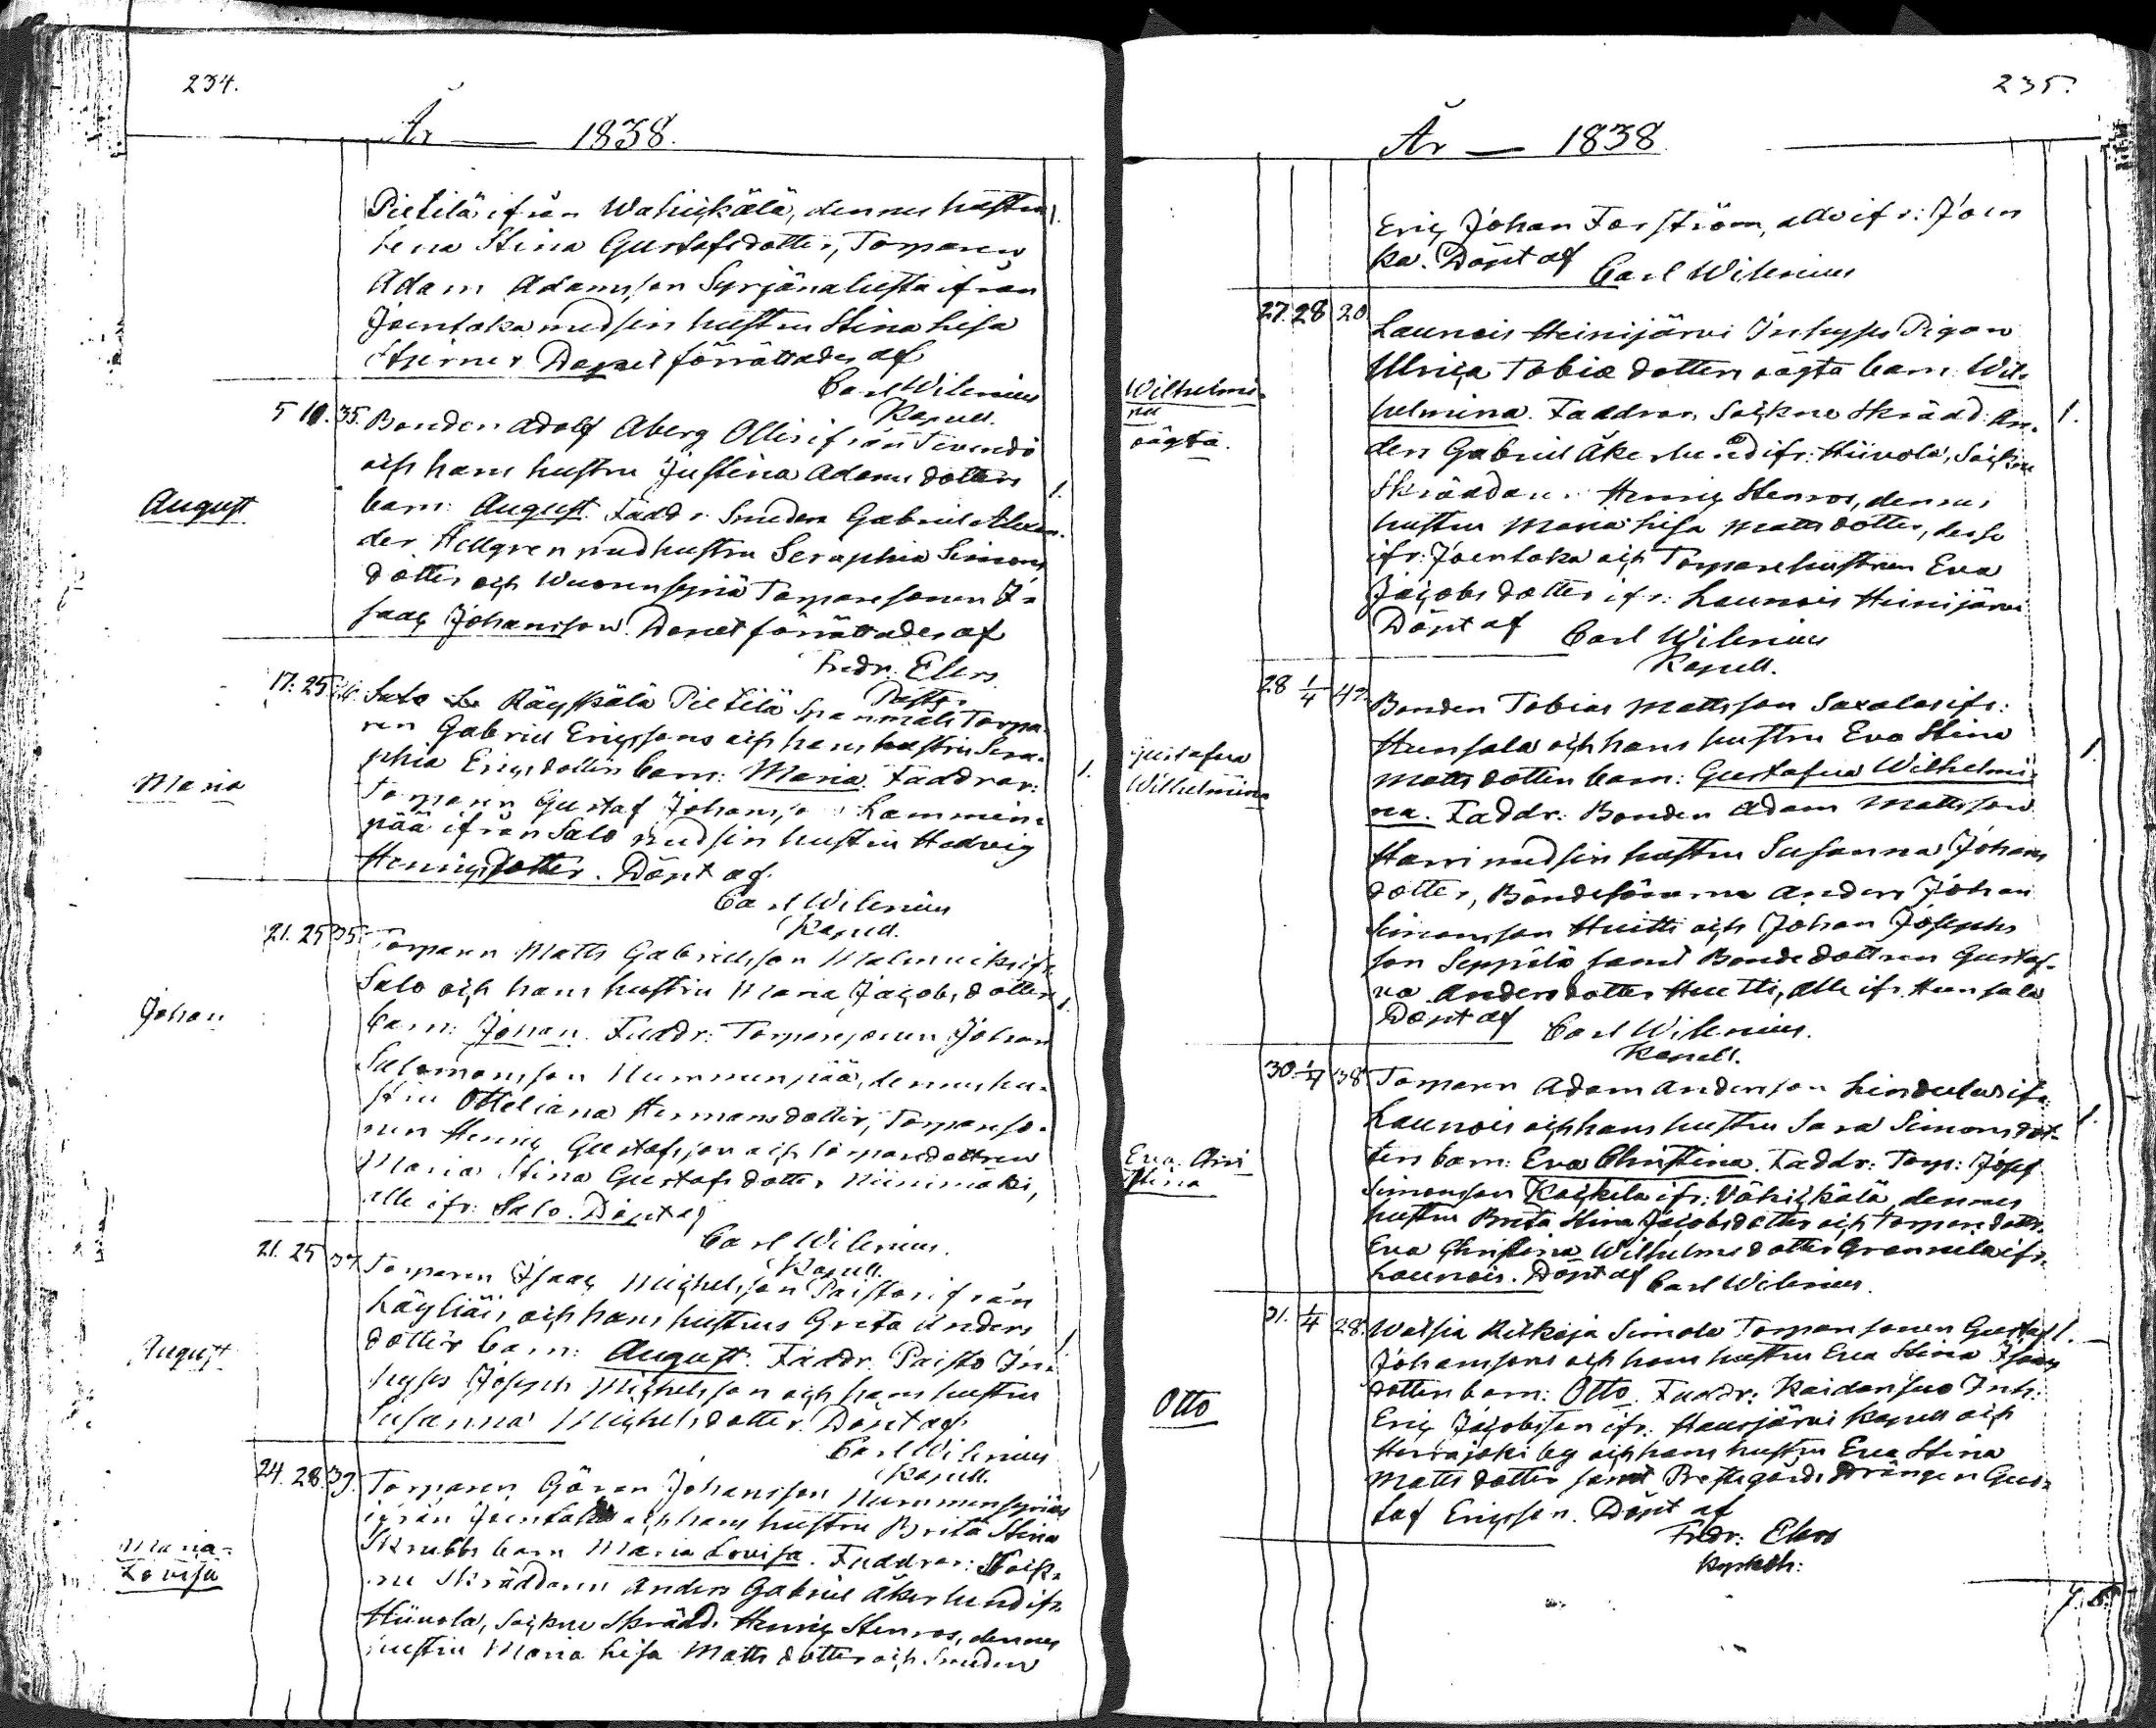 234.
År — 1838.
Pietilä ifrån Wahikkälä, dennes hustru 1.
Lena Stina Gustafsdotter, Torparen
Adam Adamsson Syrjänalusta ifrån
Joentaka med sin hustru Stina Lisa
Dopet förrättades af
Carl Wilenius
Kapell.
5 10. 35. Bonden Adolf Åberg Ollis ifrån
och hans hustru Justina Adams dotters 1.
August
barn: August. Fadd. Smeden Gabriel Alexan-
der Hellgren med hustru Seraphia Simons
dotter och Torparesonen I-
saac Johansson. Dopet förrättades af
Fredr. Elers
17. 25 Salo Räyskälä Pietilä Spanmåls Torpa-
ren Gabriel Ericssons och hans hustru Sera-
Maria
phia Ericsdotters barn: Maria. Faddrar: 1.
Torparen Gustaf Johansson Lammin-
pää ifrån Salo med sin hustru Hedvig
Henricsdotter. Döpt af
Carl Wilenius
Kapell.
21. 25 35. Torparen Matts Gabrielsson ifr.
Salo och hans hustru Maria Jacobsdotters 1.
Johan
barn: Johan. Faddr: Torparesonen Johan
Salomonsson Nummenpää, dennes hu-
stru Otteliana Hermansdotter, Torpareso-
nen Henric Gustafsson och Torparedottren
Maria Stina Gustafsdotter Niinimäki,
alle ifr: Salo. Döpt af
Carl Wilenius.
Kapell.
21. 25 37. Torparen Isaac Michelsson Paistos ifrån
Läyliäis och hans hustrus Greta Anders
August
dotters barn: August. Faddr. Paisto In- 1.
hyses Joseph Michelsson och hans hustru
Susanna Michelsdotter. Döpt af
Carl Wilenius
Kapell.
24. 28. 39. Torparen Göran Johansson Nummensyrjäs
ifrån Joentaka och hans hustru Brita Stina
Maria
Lovisa
Skrubbs barn Maria Lovisa. Faddrar: Sock-
ne Skräddaren Anders Gabriel Åkerlund ifr.
Hünola, Sockne Skrädd. Henric Stenros, dennes
hustru Maria Lisa Matts dotter och Smeden
235.
År — 1838
Eric Johan Forström, alle ifr: Joen
ka. Döpt af Carl Wilenius
27. 28 20 Launois Heinijärvi Inhyses Pigan
Ulrica Tobiæ dotters oägta barn: Wil-
Wilhelmi-
na
oägta.
helmina. Faddrar, Sockne Skrädd: An- 1.
ders Gabriel Åkerlund ifr: Hiivola, Sockne
Skräddaren Henric Stenros, dennes
hustru Maria Lisa Matts dotter, desse
ifr: Joentaka och Torparehustrun Eva
Jacobs dotter ifr: Launois Heinijärvi
Döpt af Carl Wilenius
Kapell.
28 1/4 42. Bonden Tobias Mattsson Saxalas ifr:
Hunsala och hans hustru Eva Stina 1.
Gustafva
Wilhelmina
Matts dotters barn: Gustafva Wilhelmi-
na. Faddr: Bonden Adam Mattsson
Harri med sin hustru Susanna Johans
dotter, Bondesönerna Anders Johan
Simonsson Huitti och Johan Josephs
son Seppälä samt Bondedottren Gustaf-
va Andersdotter Huetti, alle ifr. Hunsala
Döpt af Carl Wilenius.
Kapell.
30. 1/4 38 Torparen Adam Andersson Lindulas ifr.
Launois och hans hustru Sara Simonsdot- 1.
Eva Chri
stina
ters barn: Eva Christina. Faddr: Torp: Josef
Simonsson Kackila ifr: Väkickälä, dennes
hustru Brita Stina Jacobsdotter och Torpare dottr.
Eva Christina Wilhelmsdotter Grannila ifr.
Launois. Döpt af Carl Wilenius.
31. 1/4 28. Watsia Ritkoja Simola Torparesonen Gustaf 1.
Johanssons och hans hustru Eva Stina Isaacs
Otto
dotters barn: Otto. Faddr: Kaidansuo Inh:
Eric Jacobsson ifr. Hausjärvi Kapell och
Herrajoki by och hans hustru Eva Stina
Matts dotter samt Prestgårds Drängen Gus-
taf Ericsson. Döpt af
Fredr: Elers
Kyrkoh: